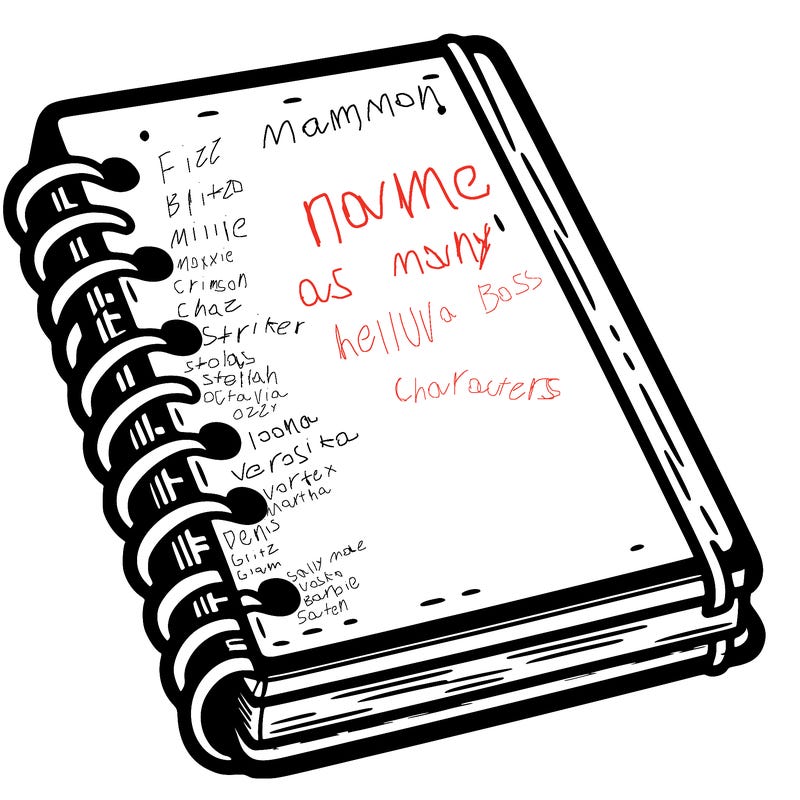 Mammon
Fizz
Blitzo
Millie
Moxxie
Crimson
Chaz
Striker
stolas
stellah
octavia
ozzy
loona
Verosika
vortex
martha
Denis
Glitz
Glam
Sally mae
Vaska
Barbie
Saten
name
as many
helluva Boss
Characters